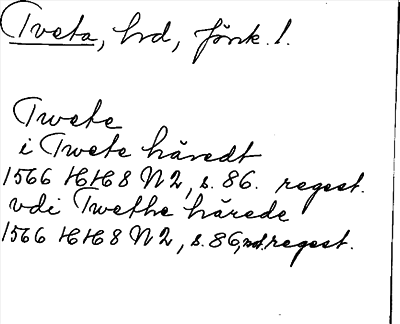 Tveta, hrd, förk. 1.
Twete
i Twete häredt
1566 HH8 N2, s. 86. regest.
vdi Twethe härede
1566 HH8 N2, s. 86, regest.